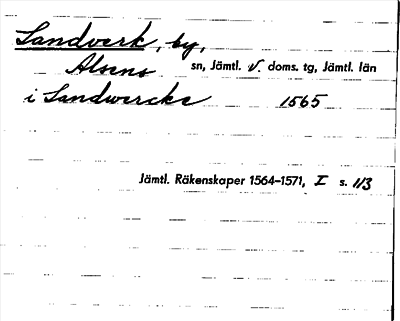 Landverk, by,
Alsens sn, Jämtl. v. doms. tg, Jämtl. län
i Landwercke 1565
Jämtl. Räkenskaper 1564–1571, I s. 113